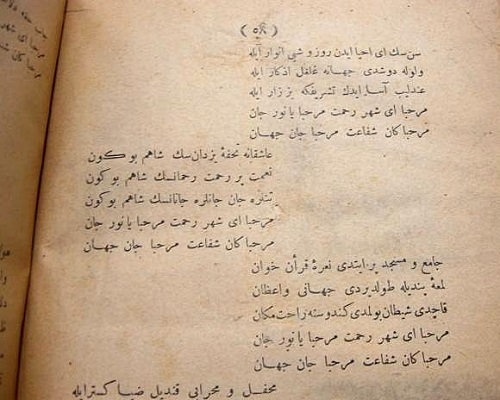 ( ٥٨ )
سن سك ای احیا ایدن روز و شبی انوار ایله
ولوله دوشدی جهانه غلغل اذکار ایله
عندلیب آسا ایدك تشریفکه بز زار ایله
مرحبا ای شهر رحمت مرحبا یا نور جان
مرحبا کان شفاعت مرحبا جان جهان
عاشقانه تحفۀ یزدان سك شاهم بوکون
نعمت پر رحمت رحمانسك شاهم بوکون
تنلره جان جانلره جانانسك شاهم بوکون
مرحبا ای شهر رحمت مرحبا یا نور جان
مرحبا کان شفاعت مرحبا جان جهان
جامع و مسجد پر ایتدی نعرۀ قرآن خوان
لمعۀ پندیله طولدیردی جهانی واعظان
قاچدی شیطان بولمدی کندوسنه راحت مکان
مرحبا ای شهر رحمت مرحبا یا نور جان
مرحبا کان شفاعت مرحبا جان جهان
محفل و محرابی قندیل ضیا کستر ایله